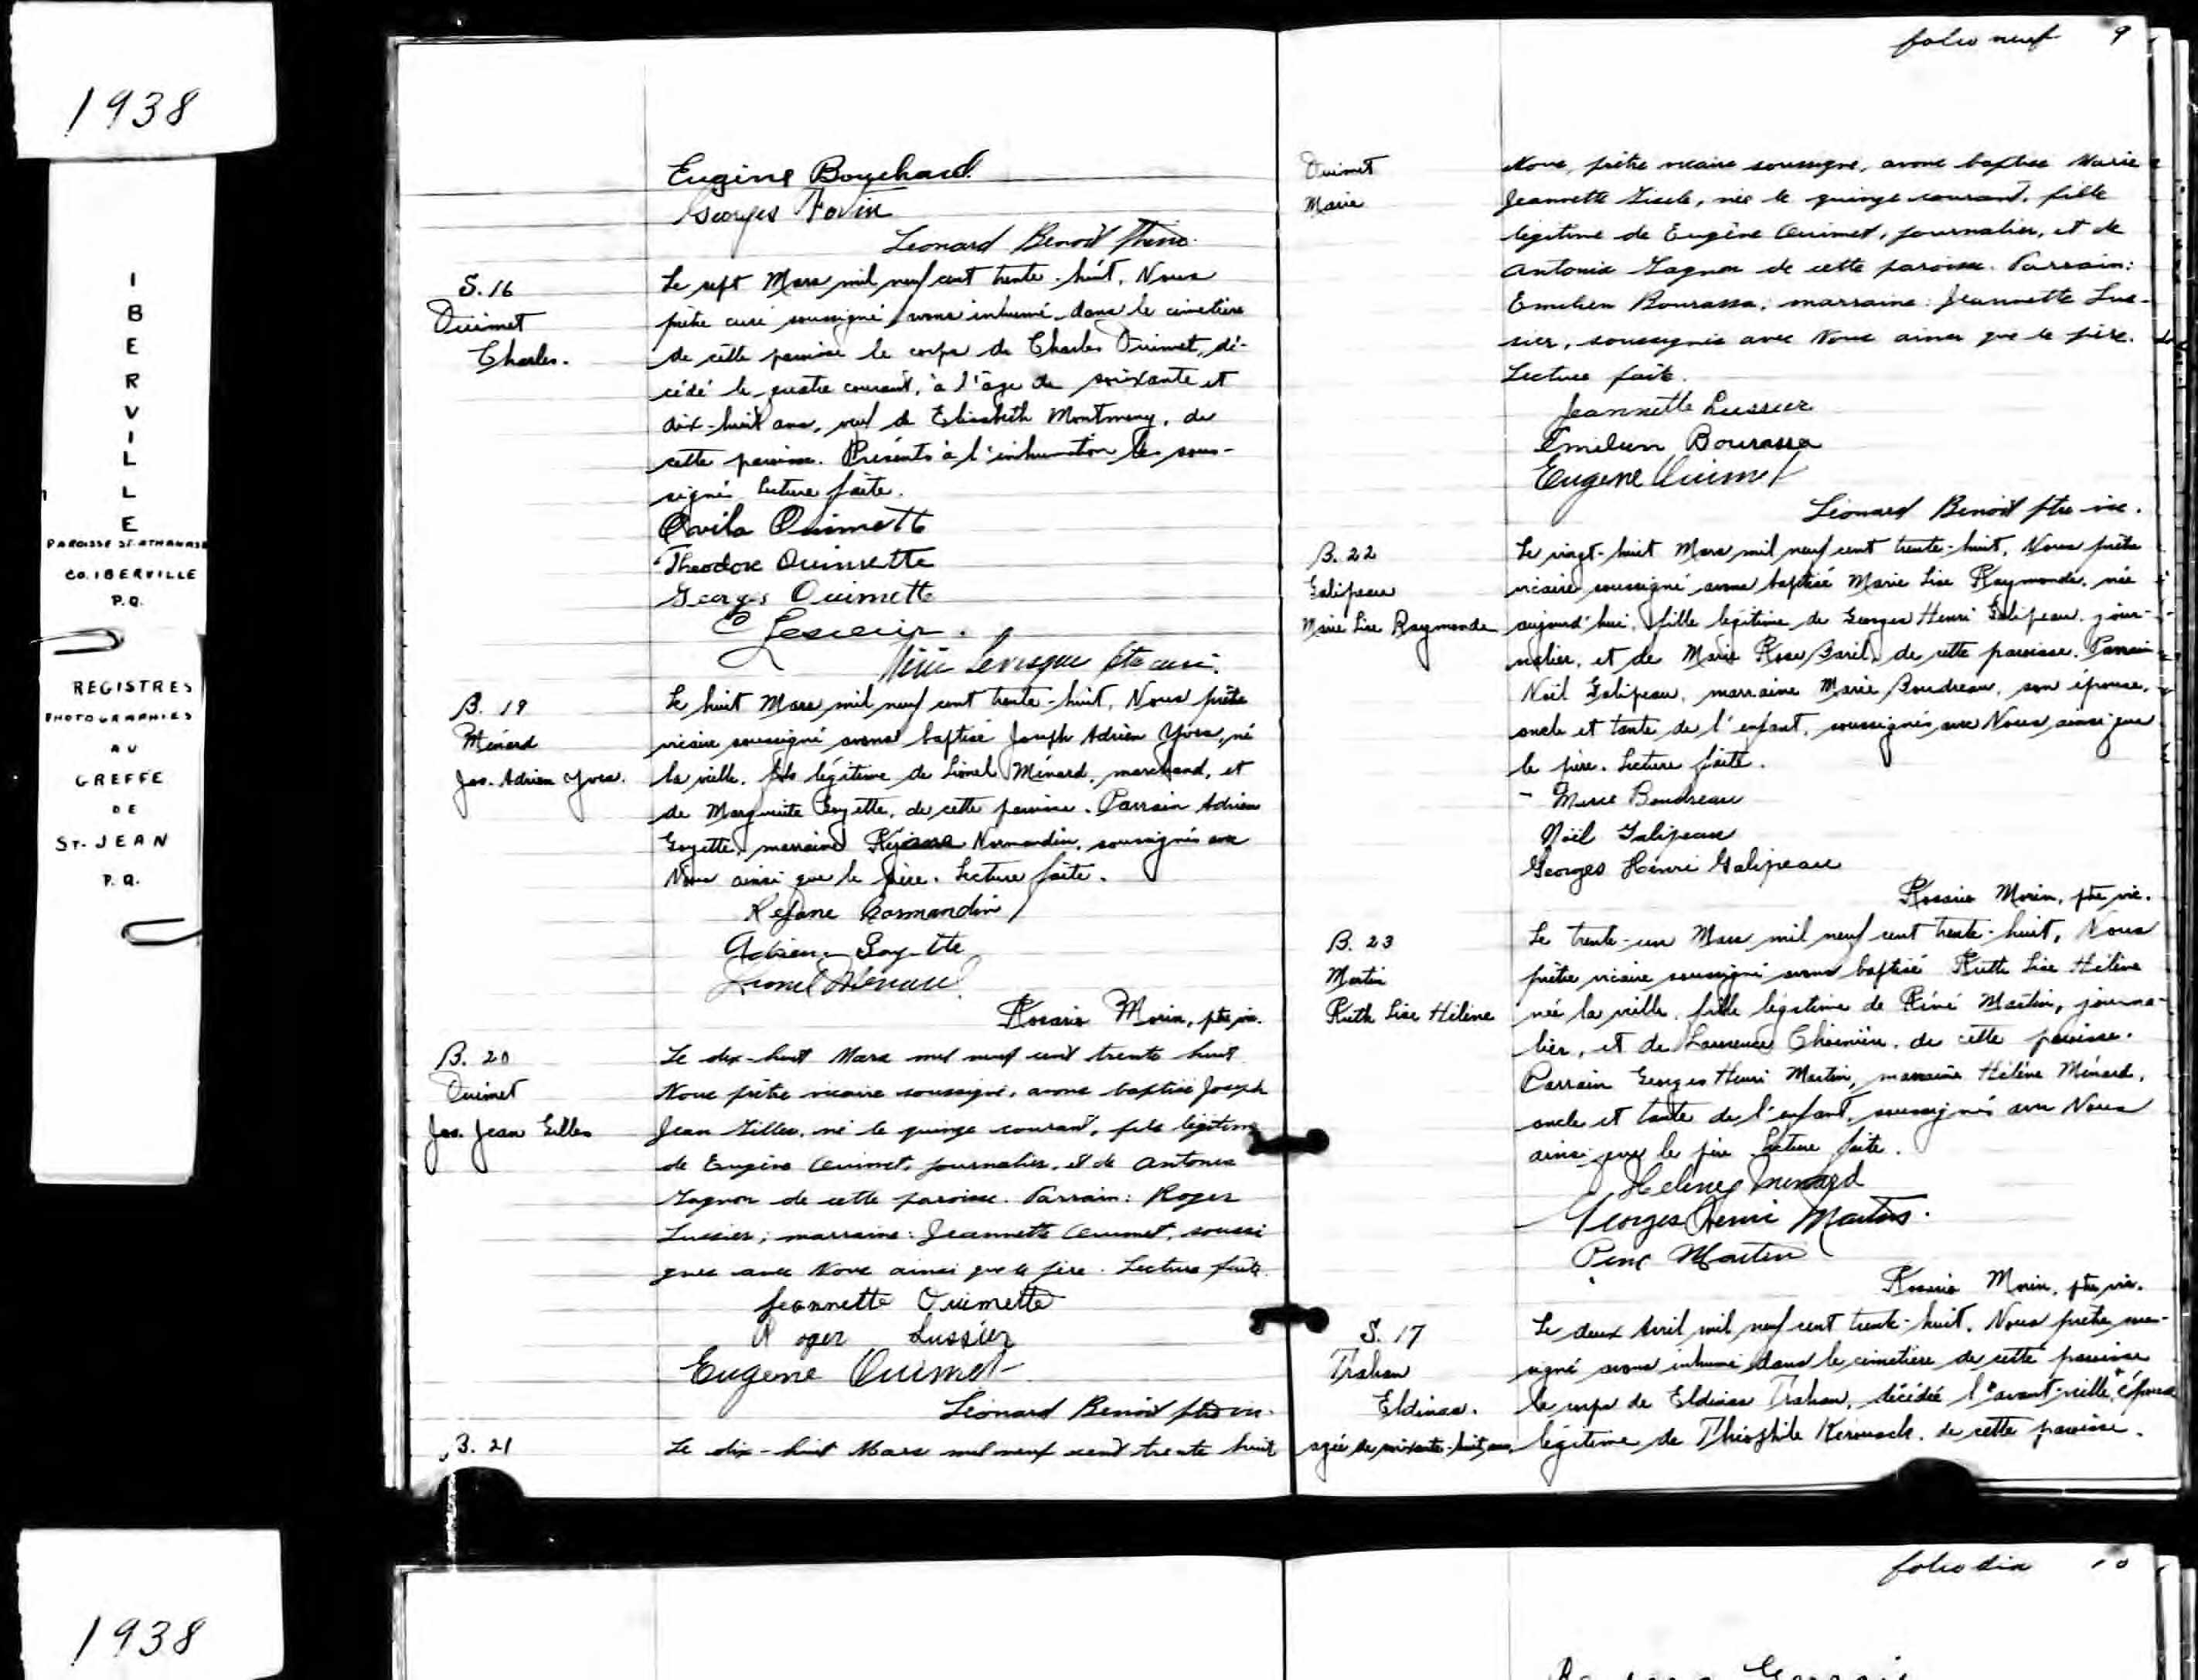 1938
I
B
E
R
V
I
L
L
E
PAROISSE ST. ATHANASE
CO. IBERVILLE
P.Q.
REGISTRES
PHOTOGRAPHIES
AU
GREFFE
DE
ST-JEAN
P.Q.
1938
Eugène Bouchard
Georges Fortin
Léonard Benoit ptre vic.
S. 16
Ouimet
Charles.
Le sept Mars mil neuf cent trente-huit, Nous
prêtre curé soussigné avons inhumé dans le cimetière
de cette paroisse le corps de Charles Ouimet, dé-
cédé le quatre courant, à l'âge de soixante et
dix-huit ans, veuf de Elisabeth Montmeny, de
cette paroisse. Présents à l'inhumation les sous-
signés. Lecture faite.
Ovila Ouimette
Theodore Ouimette
Georges Ouimette
Levesque ptre curé.
B. 19
Ménard
Jos. Adrien Yves.
Le huit Mars mil neuf cent trente-huit, Nous prêtre
vicaire soussigné avons baptisé Joseph Adrien Yves, né
la veille, fils légitime de Lionel Ménard, marchand, et
de Marguerite Goyette, de cette paroisse. Parrain Adrien
Goyette, marraine Réjane Normandin, soussignés avec
Nous ainsi que le père. Lecture faite.
Rejane Normandin
Adrien Goyette
Lionel Ménard
Rosario Morin, ptre vic.
B. 20
Ouimet
Jos. Jean Gilles
Le dix-huit Mars mil neuf cent trente huit
Nous prêtre vicaire soussigné, avons baptisé Joseph
Jean Gilles, né le quinze courant, fils légitime
de Eugène Ouimet, journalier, et de Antonia
Gagnon de cette paroisse. Parrain: Roger
Lussier; marraine: Jeannette Ouimet, soussi
gnés avec Nous ainsi que le père. Lecture faite.
Jeannette Ouimette
Roger Lussier
Eugene Ouimet
Léonard Benoit ptre vic.
B. 21
Le dix-huit Mars mil neuf cent trente huit
folio neuf 9
Ouimet
Marie
Nous, prêtre vicaire soussigné, avons baptisé Marie
Jeannette Gisèle, née le quinze courant, fille
légitime de Eugène Ouimet, journalier, et de
Antonia Gagnon de cette paroisse. Parrain:
Emilien Bourassa; marraine: Jeannette Lus-
sier, soussignés avec Nous ainsi que le père.
Lecture faite.
Jeannette Lussier
Emilien Bourassa
Eugene Ouimet
Léonard Benoit ptre vic.
B. 22
Galipeau
Marie Lise Raymonde
Le vingt-huit Mars mil neuf cent trente-huit, Nous prêtre
vicaire soussigné avons baptisé Marie Lise Raymonde, née
aujourd'hui, fille légitime de Georges Henri Galipeau, jour-
nalier, et de Marie Rose Baril, de cette paroisse. Parrain
Noël Galipeau, marraine Marie Boudreau, son épouse,
oncle et tante de l'enfant, soussignés avec Nous ainsi que
le père. Lecture faite.
Marie Boudreau
Noël Galipeau
Georges Henri Galipeau
Rosario Morin, ptre vic.
B. 23
Martin
Ruth Lise Hélène
Le trente-un Mars mil neuf cent trente-huit, Nous
prêtre vicaire soussigné avons baptisé Ruth Lise Hélène
née la veille, fille légitime de Réné Martin, journa-
lier, et de Laurence Choinière, de cette paroisse.
Parrain Georges Henri Martin, marraine Hélène Ménard,
oncle et tante de l'enfant, soussignés avec Nous
ainsi que le père. Lecture faite.
Helène Menard
Georges Henri Martin.
Rene Martin
Rosario Morin, ptre vic.
S. 17
Trahan
Eldinas.
Le deux Avril mil neuf cent trente-huit, Nous prêtre sous-
signé avons inhumé dans le cimetière de cette paroisse
le corps de Eldinas Trahan, décédée l'avant-veille, + épouse
agée de soixante-huit ans, légitime de Théophile Kerouack, de cette paroisse.
folio dix 10